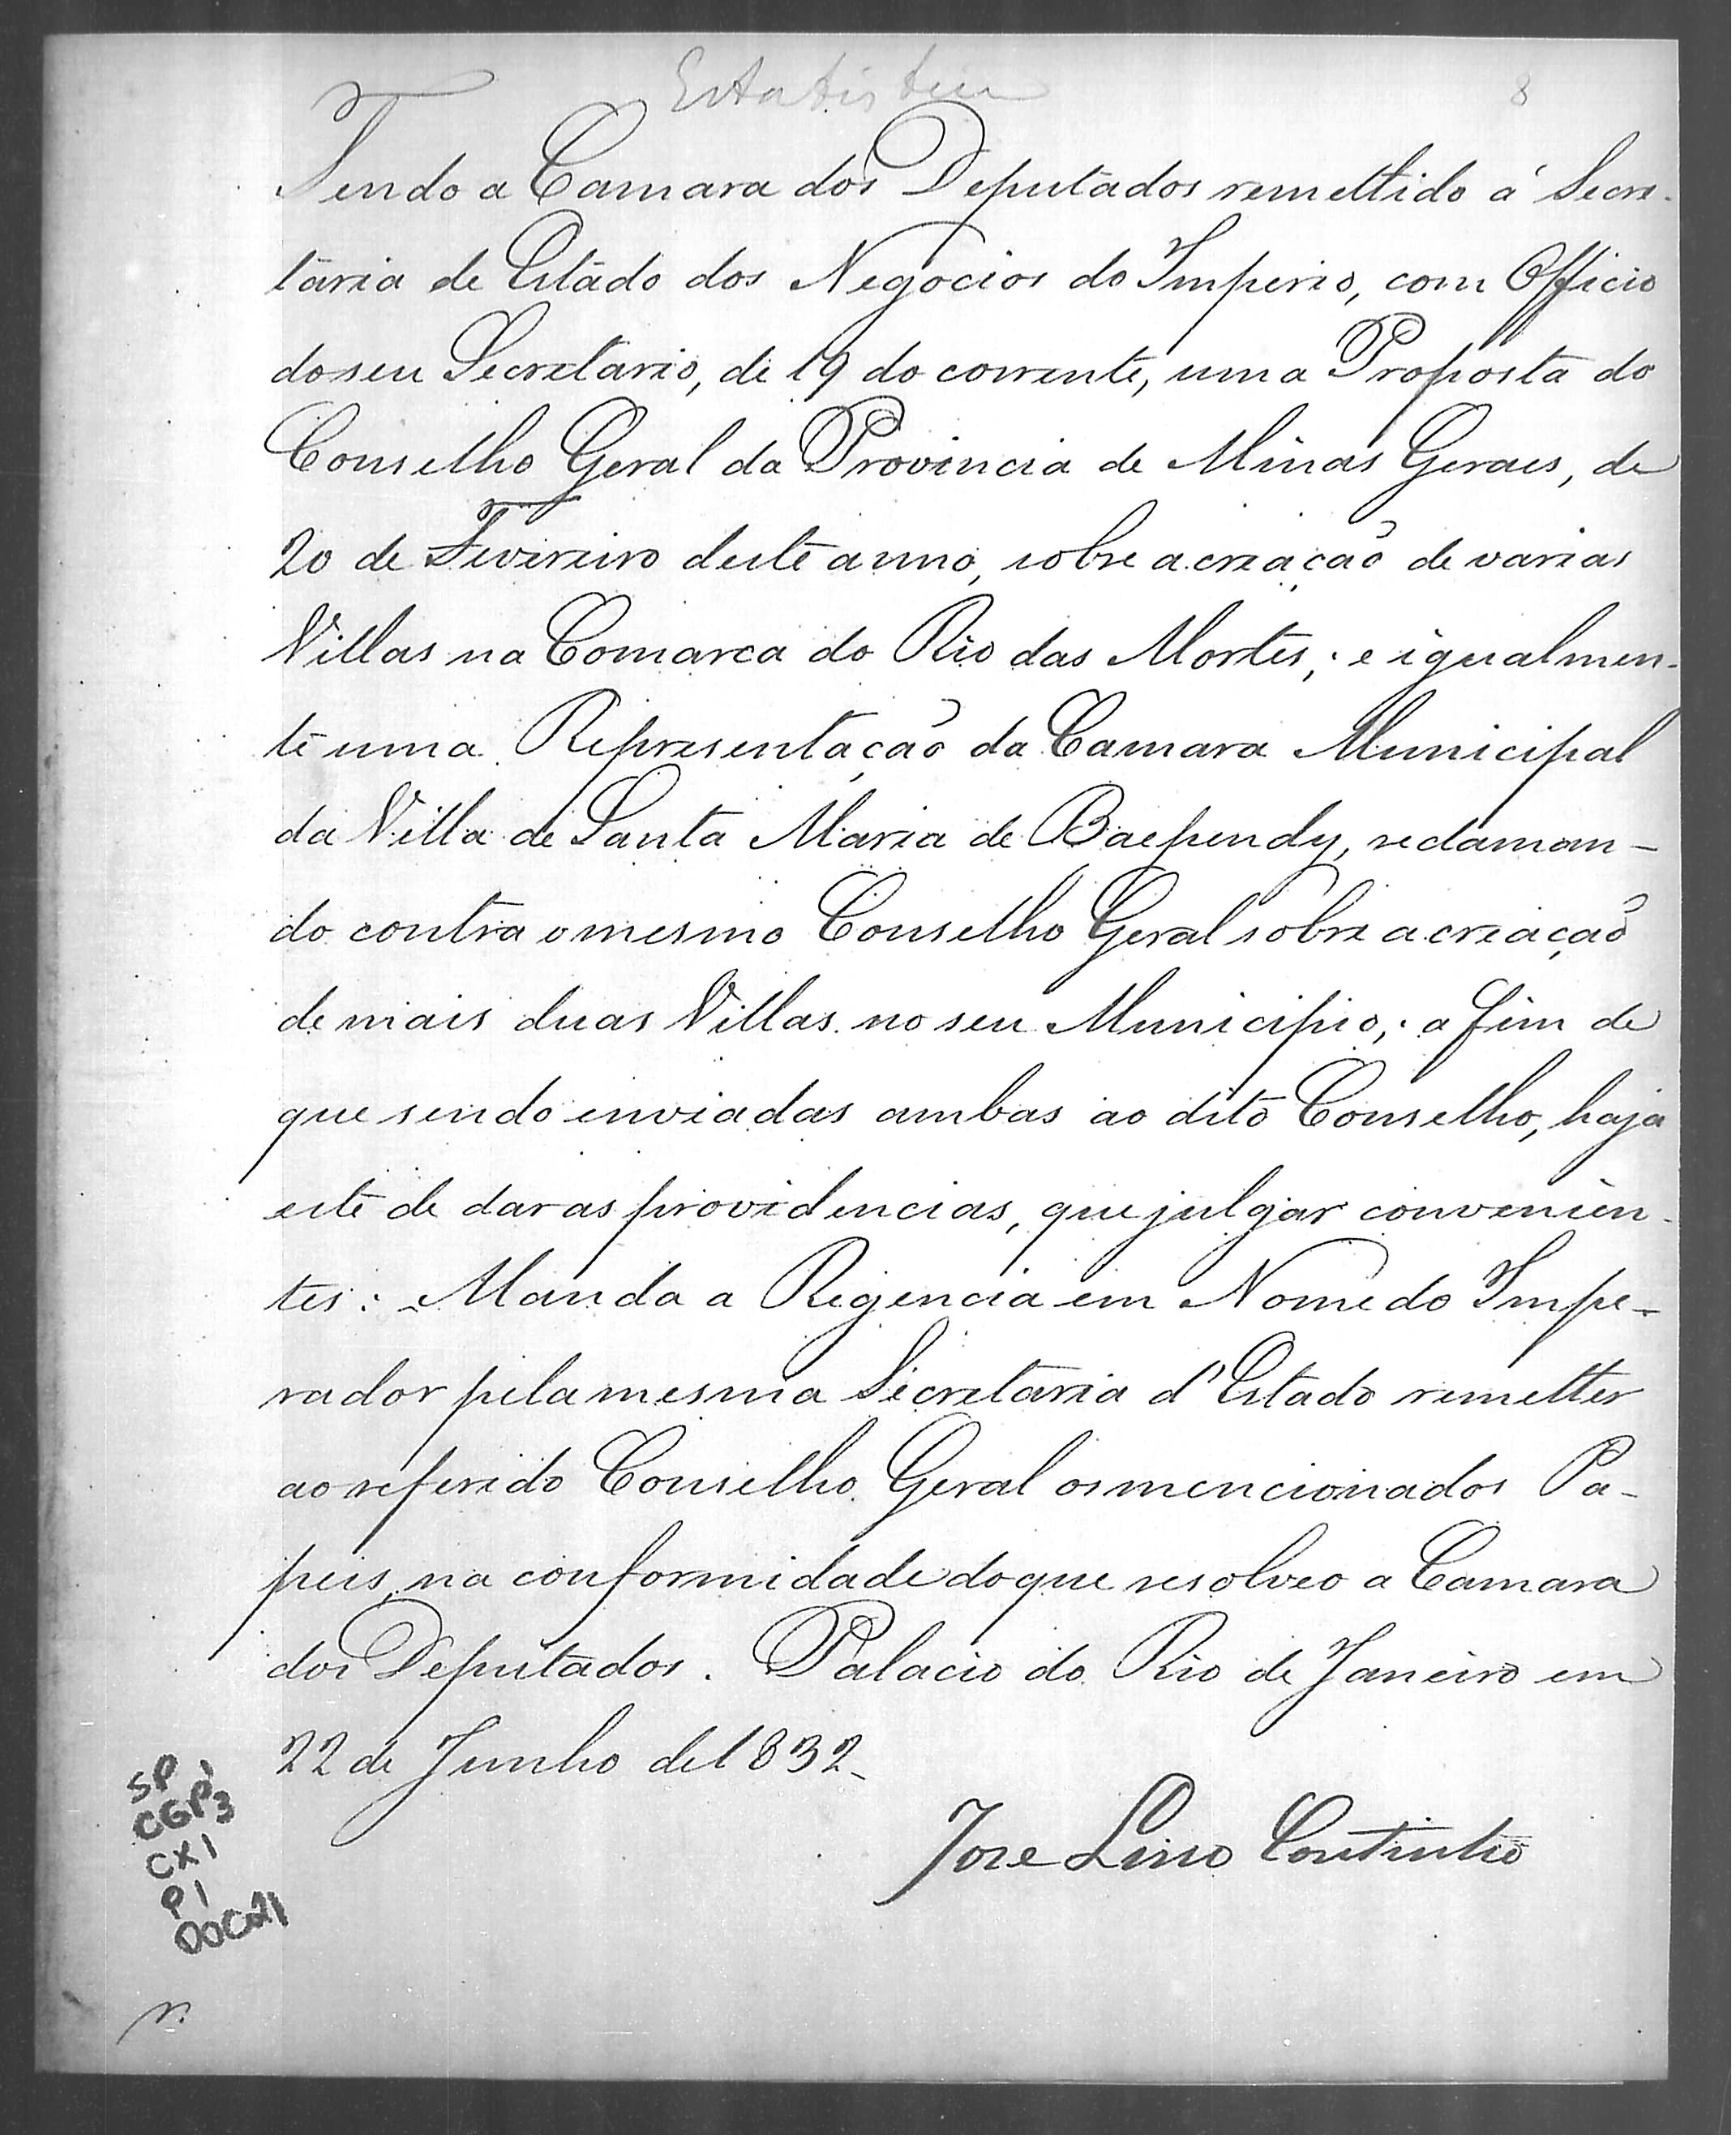 Estatistica
8
Tendo a Camara dos Deputados remettido á Secre-
taria de Estado dos Negocios do Imperio, com Officio
do seu Secretario, de 19 do corrente, uma Proposta do
Conselho Geral da Provincia de Minas Geraes, de
20 de Fevereiro deste anno, sobre a creação de varias
Villas na Comarca do Rio das Mortes; e igualmen-
te uma Representação da Camara Municipal
da Villa de Santa Maria de Baependy, reclaman-
do contra o mesmo Conselho Geral sobre a creação
de mais duas Villas no seu Municipio; a fim de
que sendo enviadas ambas ao dito Conselho, haja
este de dar as providencias, que julgar convenien-
tes: Manda a Regencia em Nome do Impe-
rador pela mesma Secretaria d'Estado remetter
ao referido Conselho Geral os mencionados Pa-
peis, na conformidade do que resolveo a Camara
dos Deputados. Palacio do Rio de Janeiro em
22 de Junho de 1832_
Jose Lino Coutinho
SP
CGP¹3
CX1
P1
DOC21